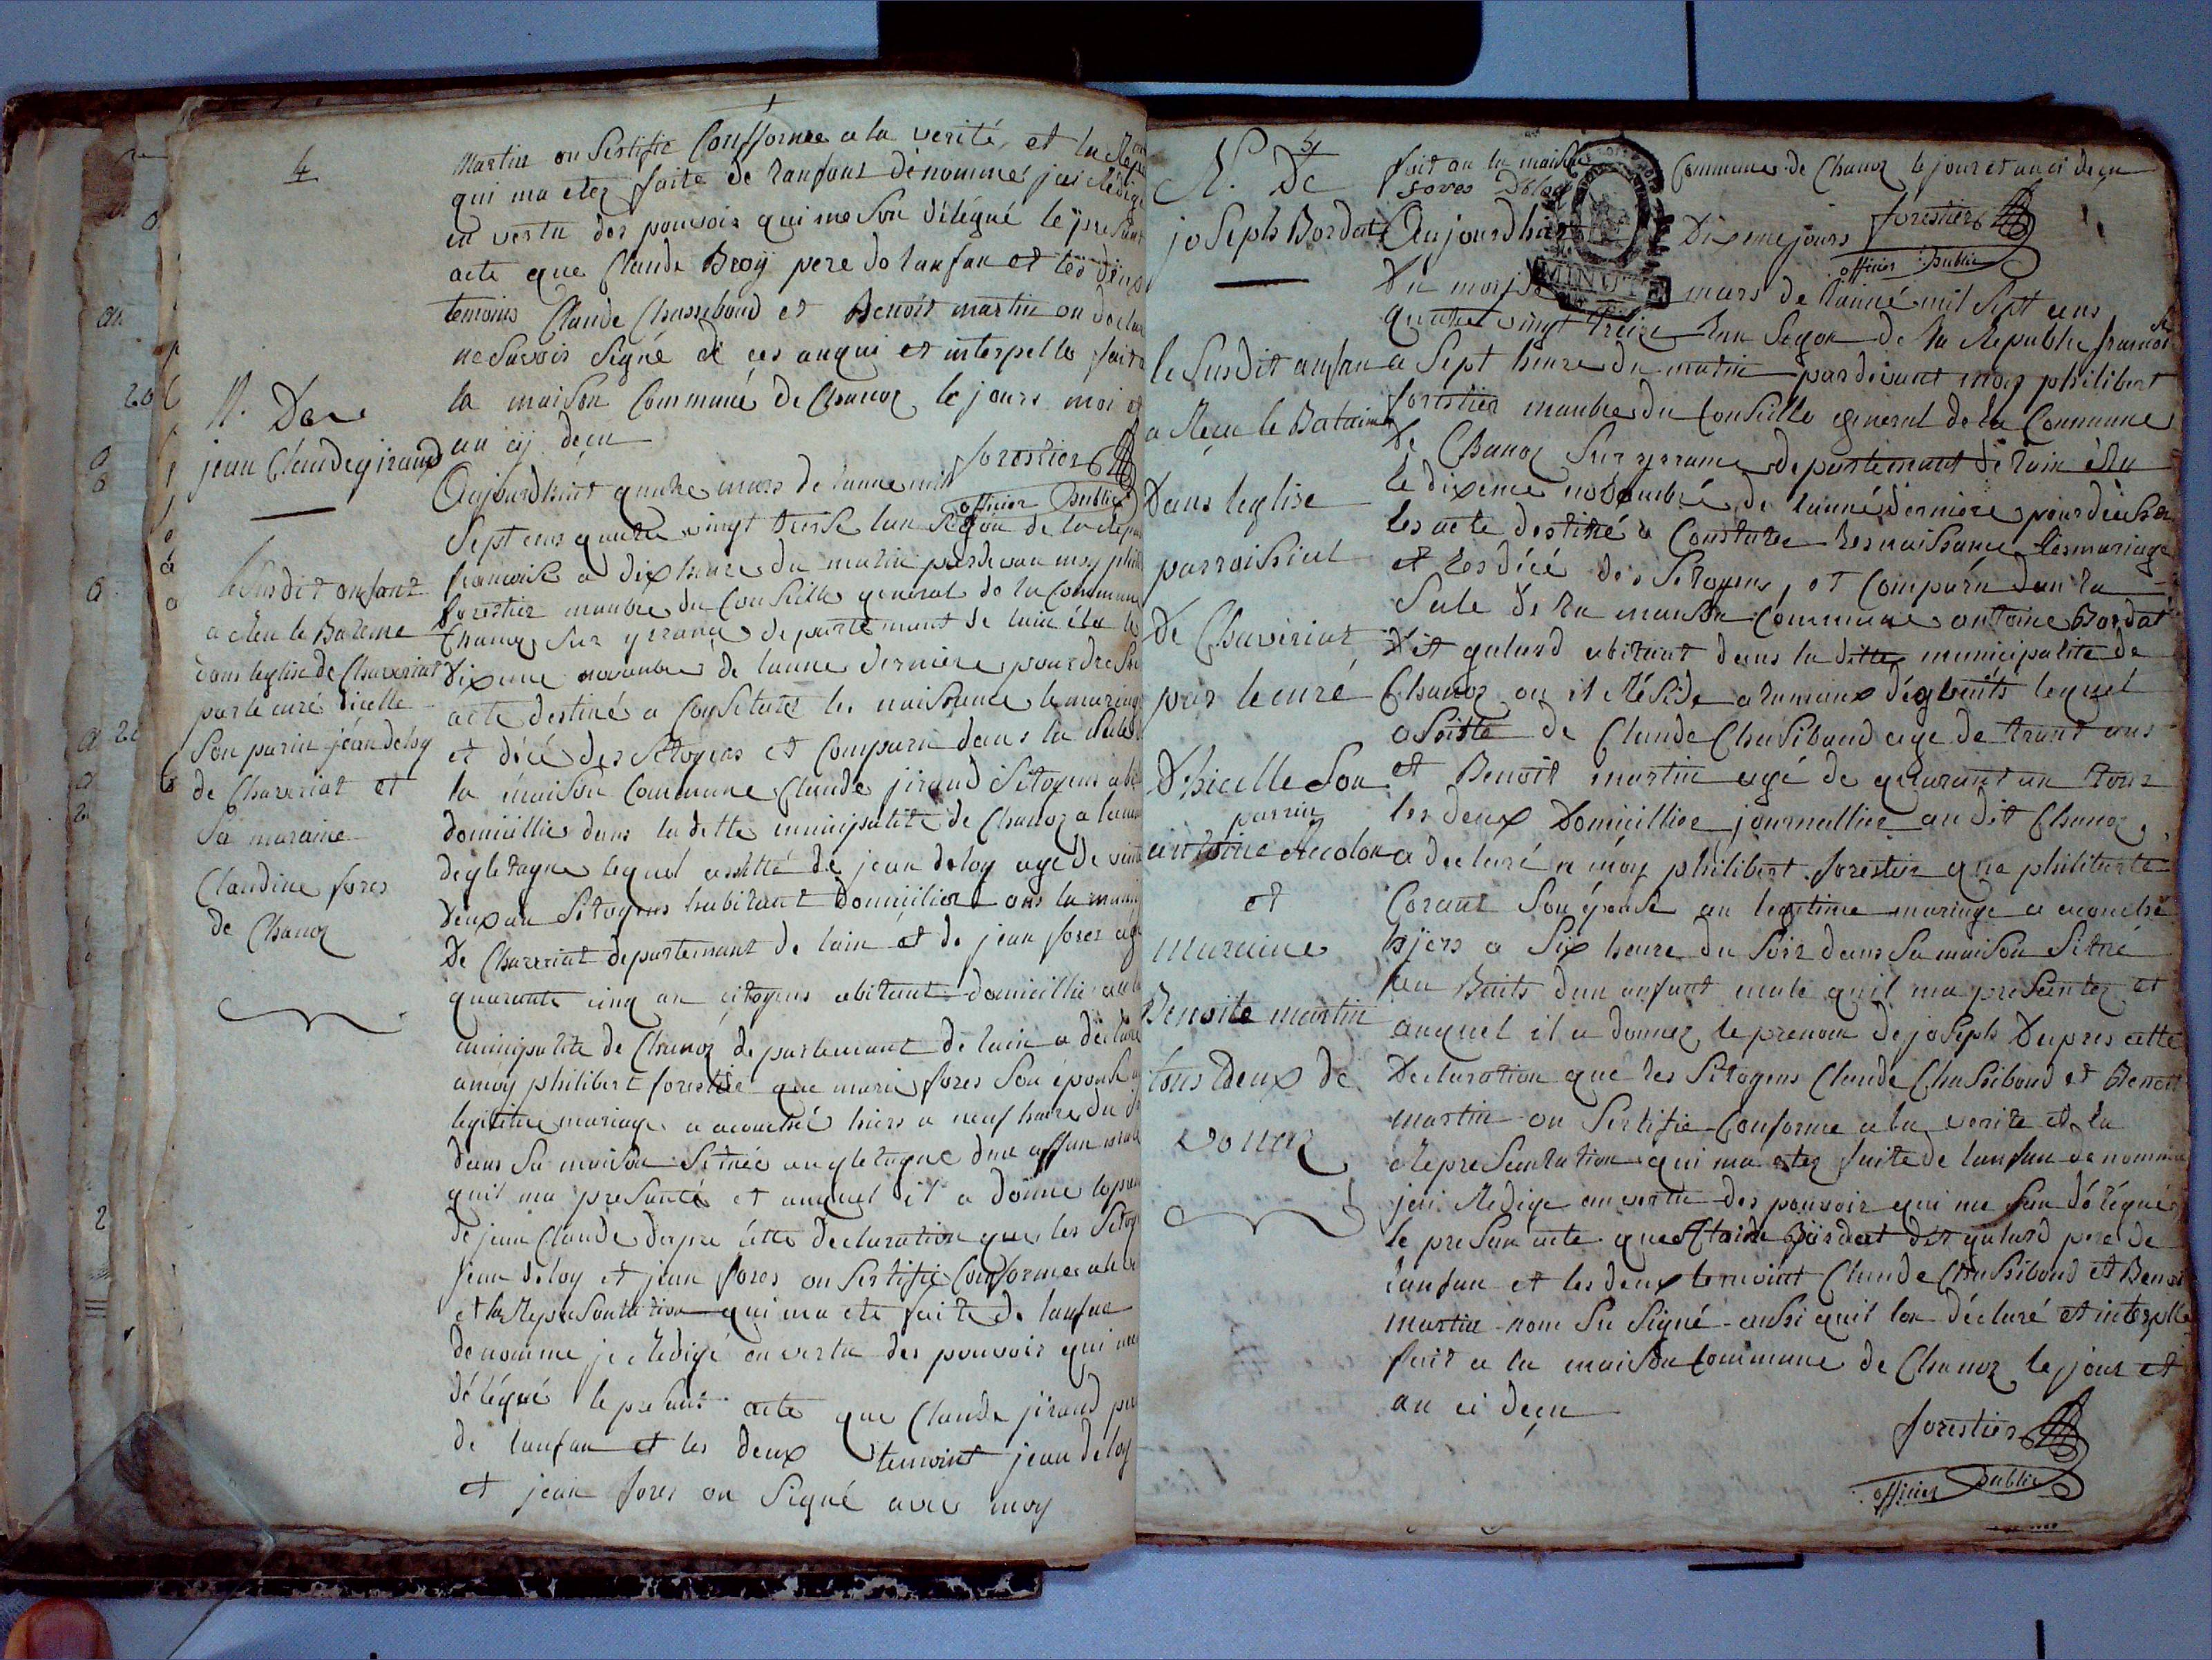 4
Martin on Sertifie Conforme a la verité, et la
qui ma etez faite de lanfans dénommé jai Redigé
en vertu des pouvoir qui me son délégué le presant
acte que Claude Broÿ pere de lanfan et les deux
temoins Claude Chassiboud et Benoit martin on declar
ne Savoir Signé de ces anqui et interpelle fait a
la maison Commune de Chanoz le jours moi et
an cy deçu
forestier
officier public
N. De
jean Claude giraud
le Susdit anfant
a Reu le Bateme
dans leglise de Chaveriat
par le curé dicelle
Son parin jean deloy
de Chaveriat et
Sa maraine
Claudine fores
de Chanoz
Aujourdhuit quatre mars de lanne mil
Sept cens quatre vingt treise lan Segon de la Repu
francaise a dix heure du matin pardevan moy phili
forestier manbre du Conseille general de la Commune
Chanoz Sur yrrance departement de lain élu le
dixeme novenbre de lanne derniere pour dresse
acte destiné a Constater les naissance le mariage
et décé des Sitoyens et Comparu dans la Sale
la maison Commune Claude jiraud Sitoyens abi
domicillie dans la dette municipalité de Chanoz a lama
degletagne lequel assisté de jean deloy age de vint
deux an Sitoyens habitant domicilier ans la muni
De Chaveriat departemant de lain et de jean fores agé
quarante cinq an citoyens abitant domicillie
municipalite de Chanoz departemant de lain a déclaré
a moy philibert forestie que marie fores Son épouse
legitime mariage a acouché hiers a neuf heure du
dans Sa maison Sitnée angletagne dun anfan male
quil ma presanté et auquel il a donne le
de jean Claude depre cette declaration que les Sitoy
jean deloy et jean fores on Sertifié Conforme a la
et la Represantation qui ma ete faite de lanfan
denomme je Redigé en vertu des pouvoir qui me
délégué le presant acte que Claude jiraud pere
de lanfan et les deux temoint jean deloy
et jean fores on Signé avec moy
5
fait an la maison Commune de Chanoz le jour et an ci deçu
fores Deloy
forestier
officier public
MINUTE
N. De
joseph Bordat
le Susdit anfan
a Reçu le Bataime
Dans leglise
parroissial
De Chaveriat
par le curé
Dhicelle Son
parrin
antoine Recolon
et
maraine
Benoite martin
tous deux de
vonaz
Aujourdhui Dixeme jours
du mois de mars de lanné mil Sept cens
quatre vingt treize lan Segon de la Republie francaise
a Sept heure du matin pardevant moy philibert
forestier manbre du Conseille general de la Commune
de Chanoz Sur yrrance departemant de lain élu
le dixeme novembre de lanné derniere pour dresser
les acte destiné a Constater les naissance les mariage
et les décé des Sitoyens, et Comparu dan la
Sale de la maison Commune antoine Bordat
dit galard abitant dans la dette municipalite de
Chanoz ou il Réside a lamaux dégbuits lequel
asisté de Claude Chasiboud age de trant ans
et Benoit martin agé de quarant an tous
les deux Domicillier journallier au dit Chanoz
a declaré a moy philibert forestier que philiberte
Corant Son épouse an legitime mariage a acouché
hjers a Six heure du Soir dans Sa maison Sitné
au Buits dun anfant male quil ma presentez et
auquel il a donnez le prenom de joseph Daprez cette
Declaration que les Sitoyens Claude Chassiboud et Benoit
martin on Sertifie Conforme a la verite et la
Represantation qui ma etez faite de lanfan denommé
jai Redige en vertu des pouvoir qui me son délégués
le presan acte que Bordat dit galard pere de
lanfan et les deux temoint Claude Chassiboud et Benoi
martin nom Su Signé ausi quil lon déclaré et interpelle
fait a la maison Commune de Chanoz le jour et
an ci deçu
forestier
officier public